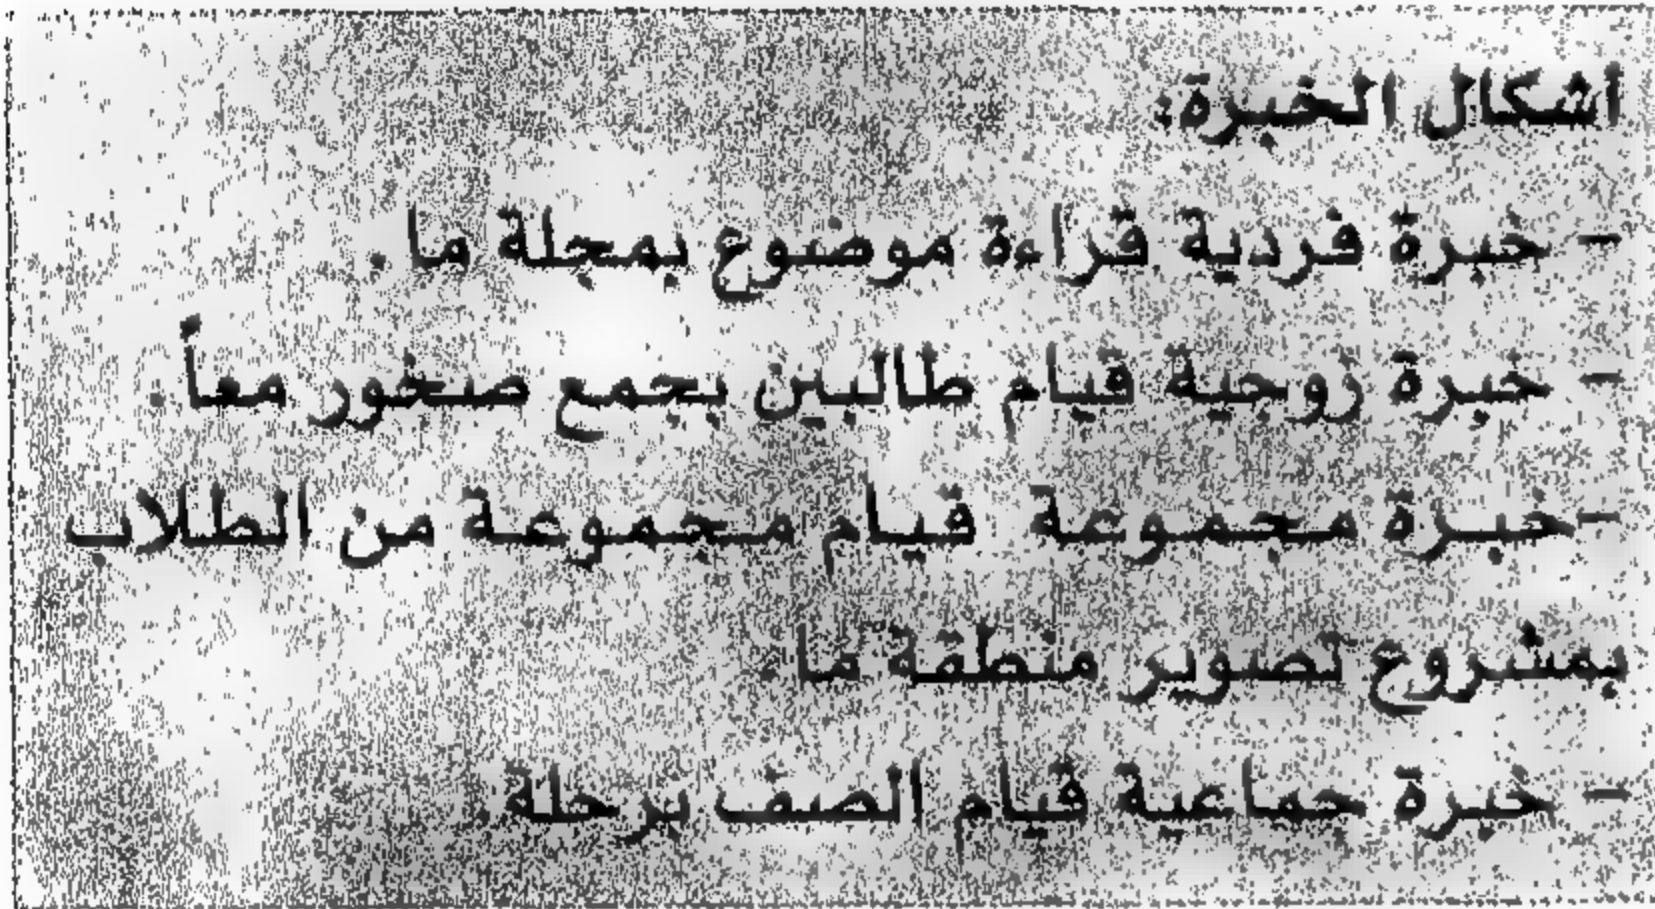 أشكال الخبرة:
- خبرة فردية قراءة موضوع بمجلة ما .
- خبرة زوجية قيام طالبين بجمع صخور معاً .
-خبرة مجموعة قيام مجموعة من الطلاب
بمشروع تصوير منطقة ما.
- خبرة جماعية قيام الصف برحلة.